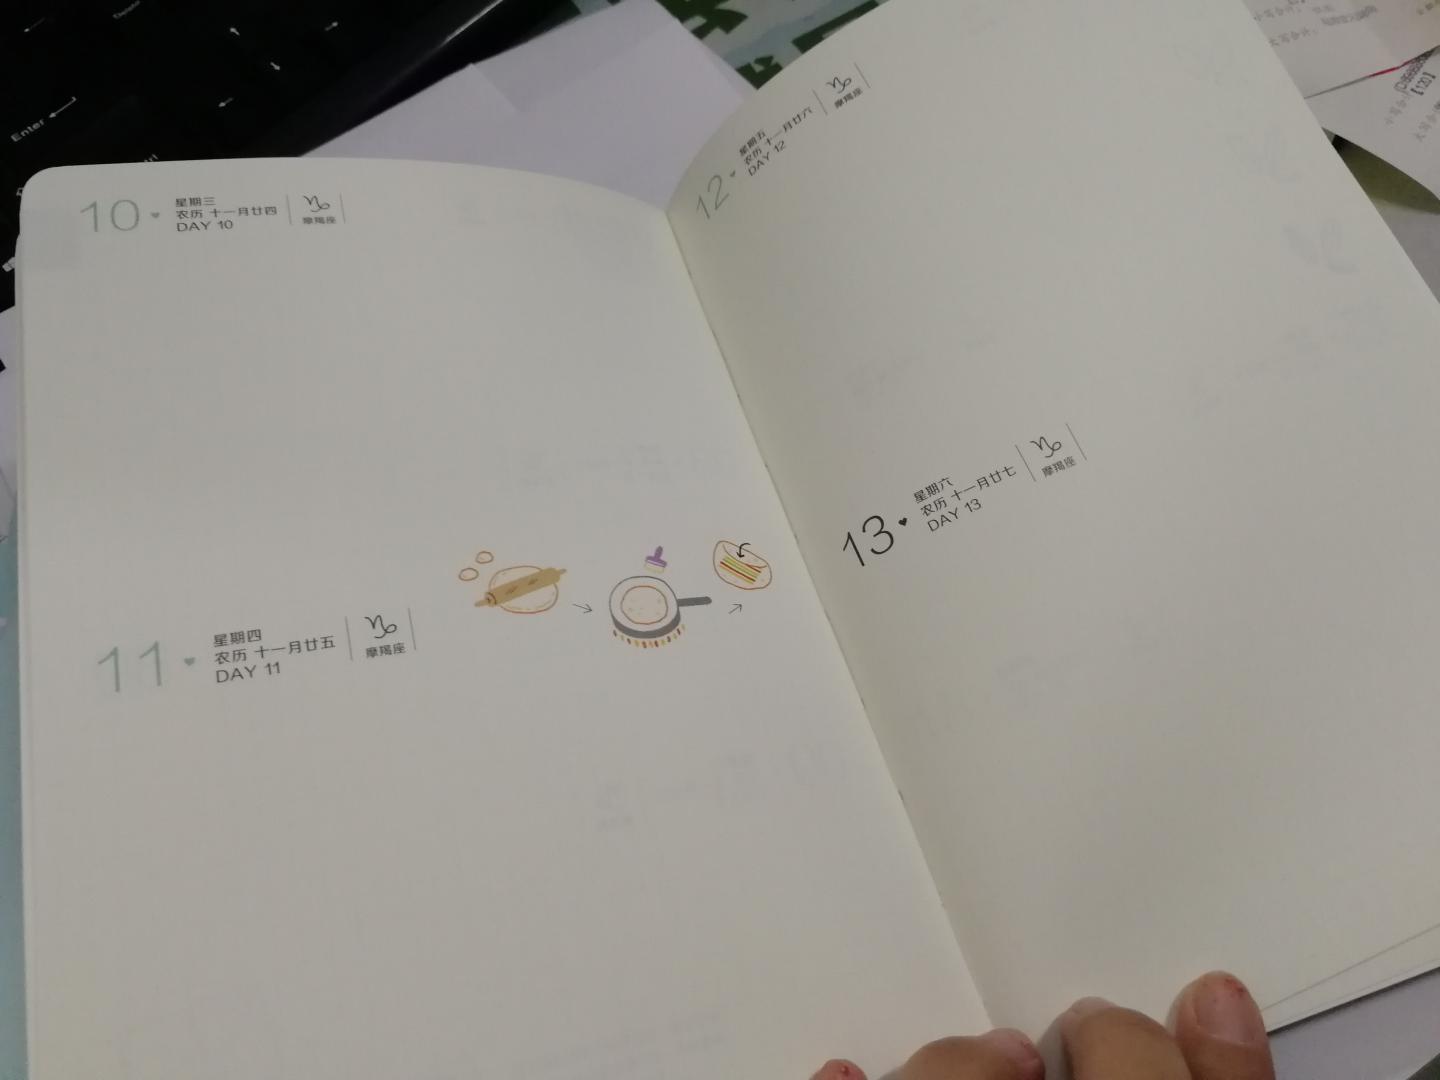 10
星期三
农历 十一月廿四
DAY 10
摩羯座
11
星期四
农历 十一月廿五
DAY 11
摩羯座
12
星期五
农历 十一月廿六
DAY 12
摩羯座
13
星期六
农历 十一月廿七
DAY 13
摩羯座
Enter
Delete
【120】